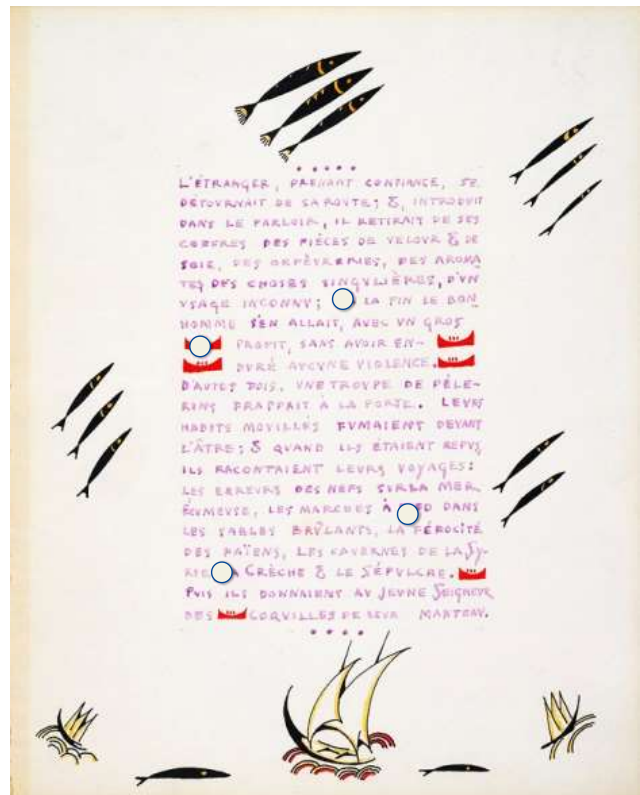 L'ÉTRANGER, PRENANT CONFIANCE, SE
DÉTOURNAIT DE SA ROUTE; &, INTRODUIT
DANS LE PARLOIR, IL RETIRAIT DE SES
COFFRES DES PIÈCES DE VELOVR & DE
SOIE, DES ORFÈVRERIES, DES AROMA
TES DES CHOSES SINGVLIÈRES, D'VN
VSAGE INCONNV; LA FIN LE BON
HOMME S'EN ALLAIT, AVEC VN GROS
PROFIT, SANS AVOIR EN-
DVRÉ AVCVNE VIOLENCE.
D'AUTES FOIS, VNE TROVPE DE PÉLE-
RINS FRAPPAIT À LA PORTE. LEVRS
HABITS MOVILLES FVMAIENT DEVANT
L'ÂTRE; & QUAND ILS ÉTAIENT REPVS,
ILS RACONTAIENT LEVRS VOYAGES:
LES ERREURS DES NEFS SUR LA MER
ÉCUMEUSE, LES MARCHES À DANS
LES SABLES BRÛLANTS, LA FÉROCITÉ
DES PAÏENS, LES CAVERNES DE LA SY-
RIE CRÈCHE & LE SÉPVLCRE.
PUIS ILS DONNAIENT AV JEVNE SEIGNEVR
DES COQVILLES DE LEVR MANTEAV.